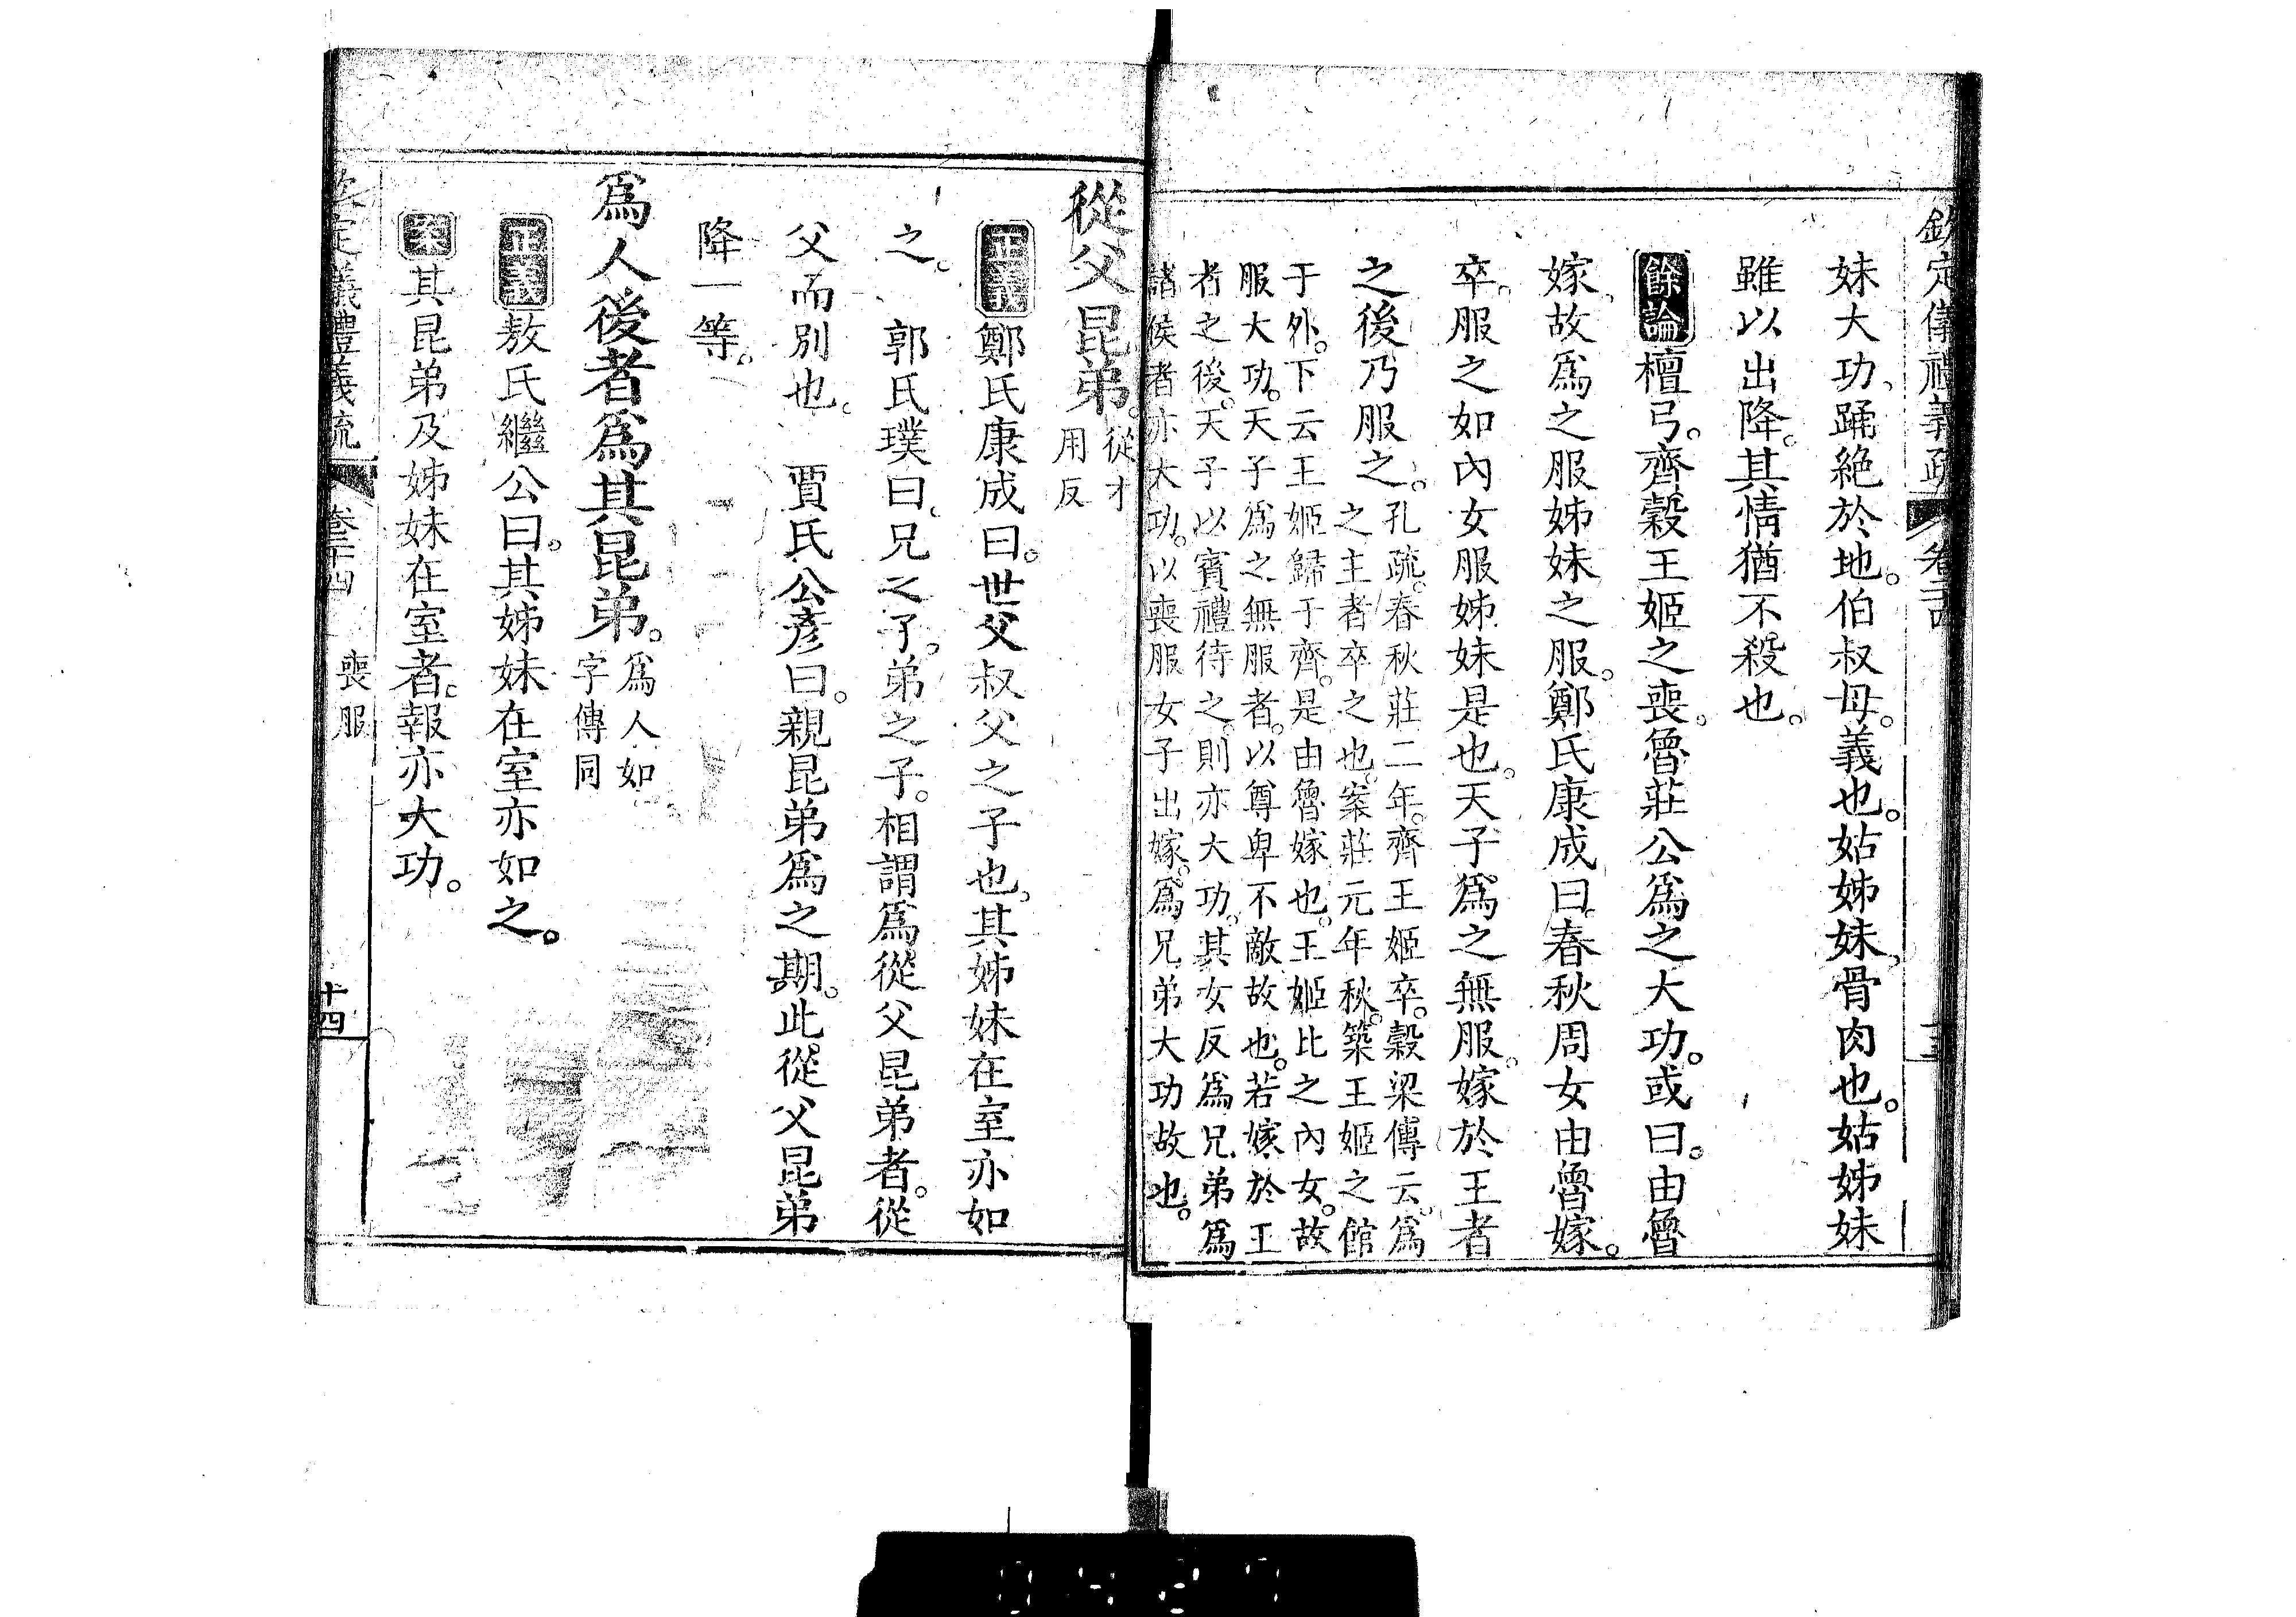 欽定儀禮義疏 卷二十四 十三
妹大功、踊絶於地。伯叔母。義也。姑姊妹、骨肉也。姑姊妹
雖以出降。其情猶不殺也。
餘論 檀弓。齊穀王姬之喪。魯莊公爲之大功。或曰。由魯
嫁、故爲之服姊妹之服。鄭氏康成曰。春秋周女由魯嫁。
卒。服之如內女服姊妹是也。天子爲之無服。嫁於王者
之後乃服之。孔疏。春秋莊二年。齊王姬卒。穀梁傳云。爲
之主者卒之也。案莊元年秋。築王姬之館
于外。下云王姬歸于齊。是由魯嫁也。王姬比之內女。故
服大功。天子爲之無服者。以尊卑不敵故也。若嫁於王
者之後。天子以賓禮待之。則亦大功。其女反爲兄弟爲
諸侯者亦大功。以喪服女子出嫁。爲兄弟大功故也。
從父昆弟。從才
用反
正義 鄭氏康成曰。世父叔父之子也。其姊妹在室亦如
之。 郭氏璞曰。兄之子。弟之子。相謂爲從父昆弟者。從
父而別也。 賈氏公彥曰。親昆弟爲之期。此從父昆弟
降一等。
爲人後者爲其昆弟。爲人如
字傳同
正義 敖氏繼公曰。其姊妹在室亦如之。
案 其昆弟及姊妹在室者。報亦大功。
欽定儀禮義疏 卷二十四 喪服 十四